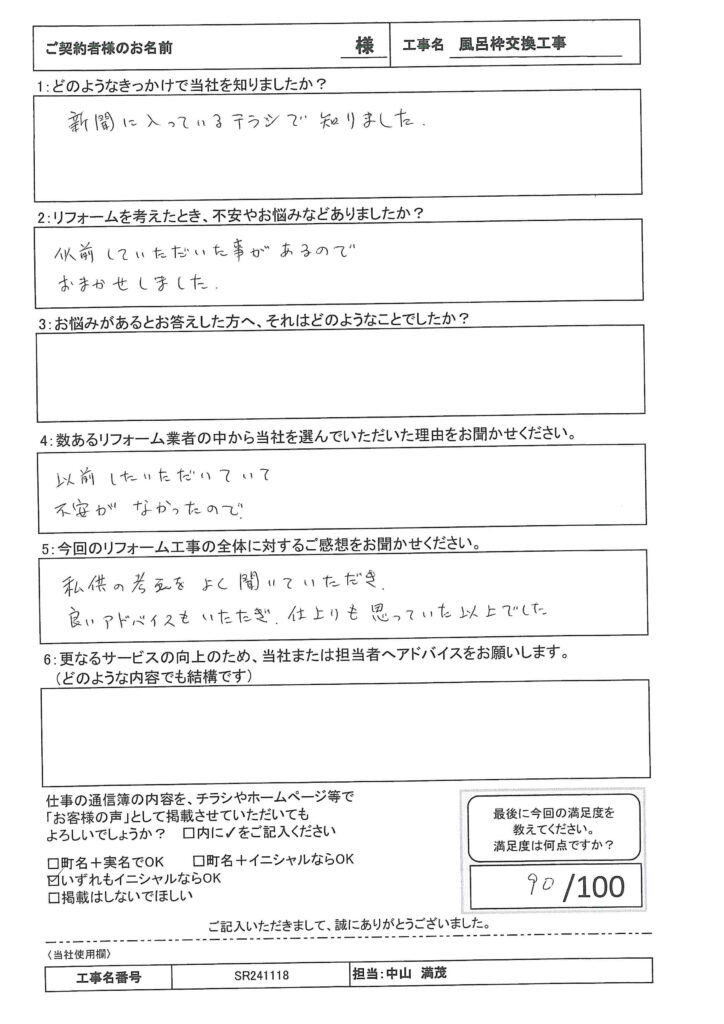 ご契約者様のお名前 様 工事名 風呂枠交換工事
1:どのようなきっかけで当社を知りましたか?
新聞に入っているチラシで知りました.
2:リフォームを考えたとき、不安やお悩みなどありましたか?
以前していただいた事があるので
おまかせしました.
3:お悩みがあるとお答えした方へ、それはどのようなことでしたか?
4:数あるリフォーム業者の中から当社を選んでいただいた理由をお聞かせください。
以前したいただいていて
不安がなかったので.
5:今回のリフォーム工事の全体に対するご感想をお聞かせください。
私供の考えをよく聞いていただき.
良いアドバイスもいただき.仕上りも思っていた以上でした
6:更なるサービスの向上のため、当社または担当者へアドバイスをお願いします。
(どのような内容でも結構です)
仕事の通信簿の内容を、チラシやホームページ等で
「お客様の声」として掲載させていただいても
よろしいでしょうか? □内に✓をご記入ください
□町名+実名でOK □町名+イニシャルならOK
☑いずれもイニシャルならOK
□掲載はしないでほしい
最後に今回の満足度を
教えてください。
満足度は何点ですか?
90/100
ご記入いただきまして、誠にありがとうございました。
〈当社使用欄〉
工事名番号 SR241118 担当:中山 満茂